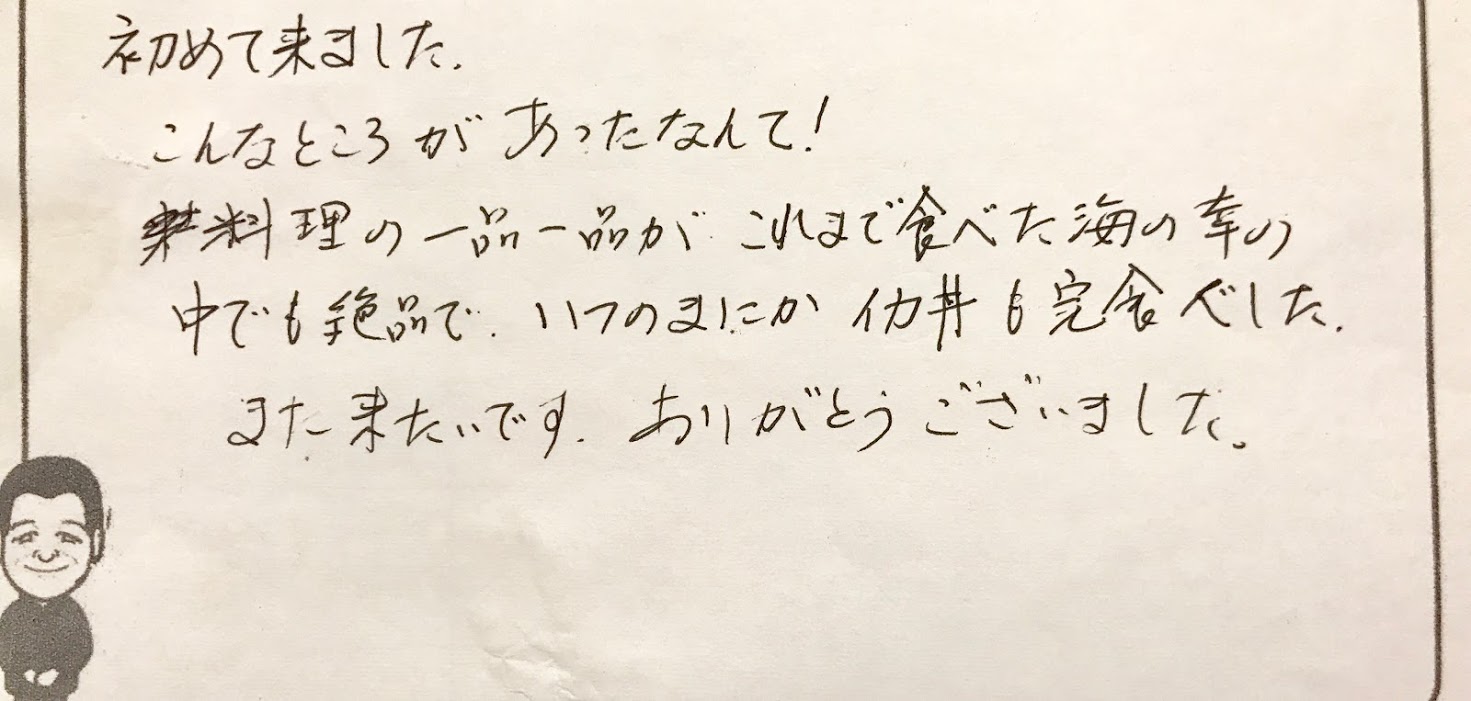 初めて来ました.
こんなところがあったなんて!
料理の一品一品がこれまで食べた海の幸の
中でも絶品で、いつのまにかイカ丼も完食べした.
また来たいです. ありがとうございました。